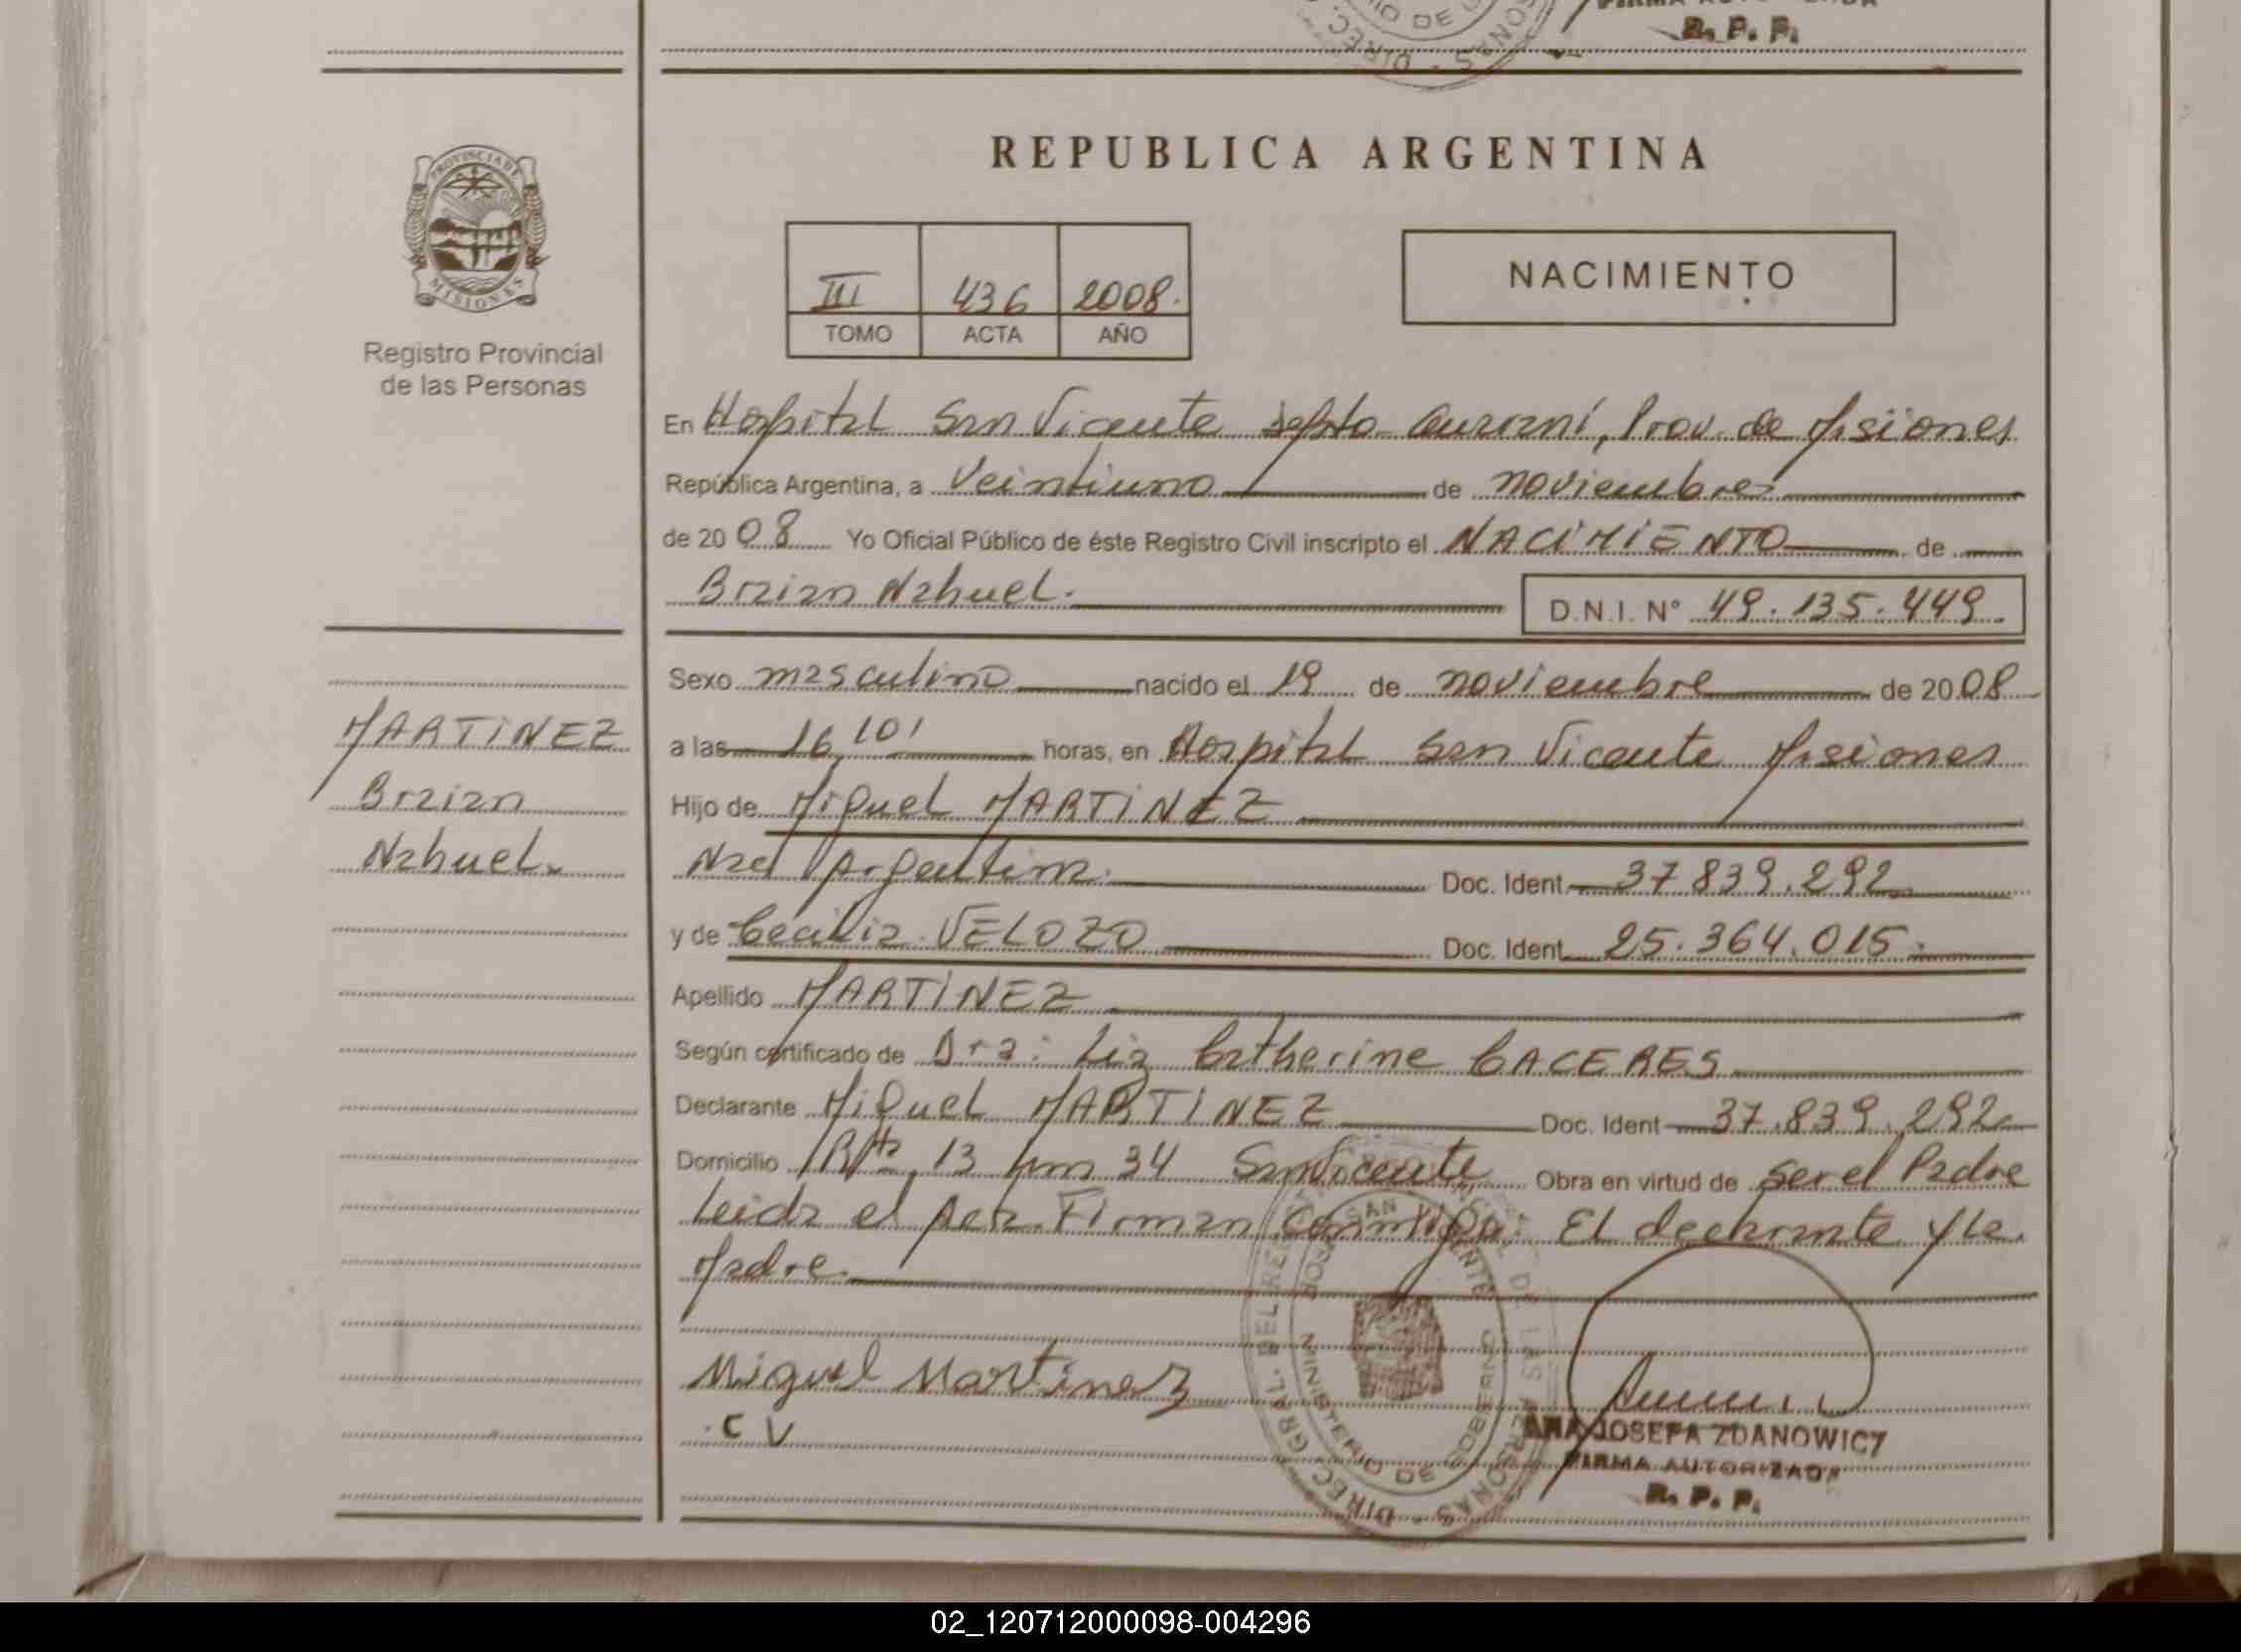 FIRMA AUTORIZADA
R. P. P.
PROVINCIA DE
MISIONES
Registro Provincial
de las Personas
REPUBLICA ARGENTINA
III 436 2008.
TOMO ACTA AÑO
NACIMIENTO
En Hospital San Vicente Depto Guaraní, Prov. de Misiones
República Argentina, a Veintiuno de noviembre
de 2008 Yo Oficial Público de éste Registro Civil inscripto el NACIMIENTO de
Braian Nahuel.
D.N.I. N° 49.135.449.
Sexo masculino nacido el 19 de noviembre de 2008
a las 16,10' horas, en Hospital San Vicente Misiones
Hijo de Miguel MARTINEZ
Nac Argentina. Doc. Ident. 37839.292
y de Cecilia VELOZO Doc. Ident. 25.364.015.
Apellido MARTINEZ
Según certificado de Dra: Liz Catherine CACERES
Declarante Miguel MARTINEZ Doc. Ident 37.839.292
Domicilio Rta 13 km 34 San Vicente Obra en virtud de ser el Padre
Leida el Acta. Firman Conmigo. El declarante y la
Madre.
MARTINEZ
Braian
Nahuel.
Miguel Martinez
C V
DIREC. GRAL. DEL REG. DE LAS PERSONAS
HOSP. SAN VICENTE
MINISTERIO DE GOBIERNO
ANA JOSEFA ZDANOWICZ
FIRMA AUTORIZADA
R. P. P.
02_120712000098-004296